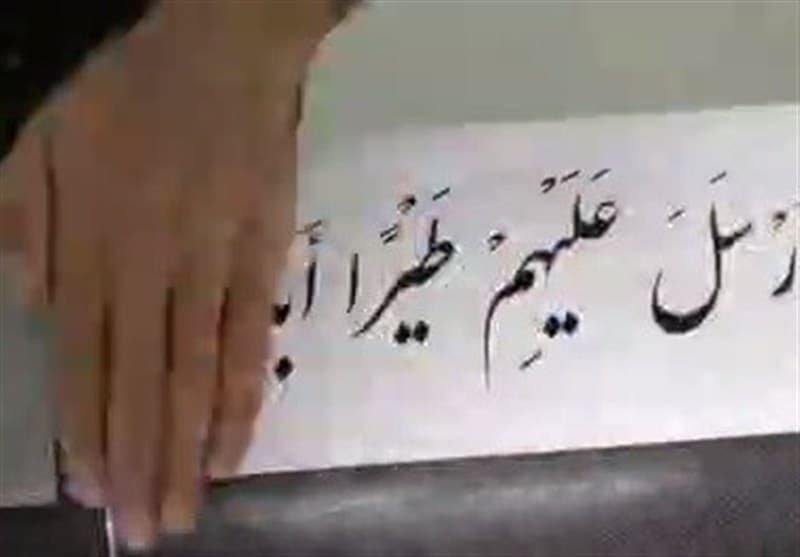 رْسَلَ عَلَيْهِمْ طَيْرًا